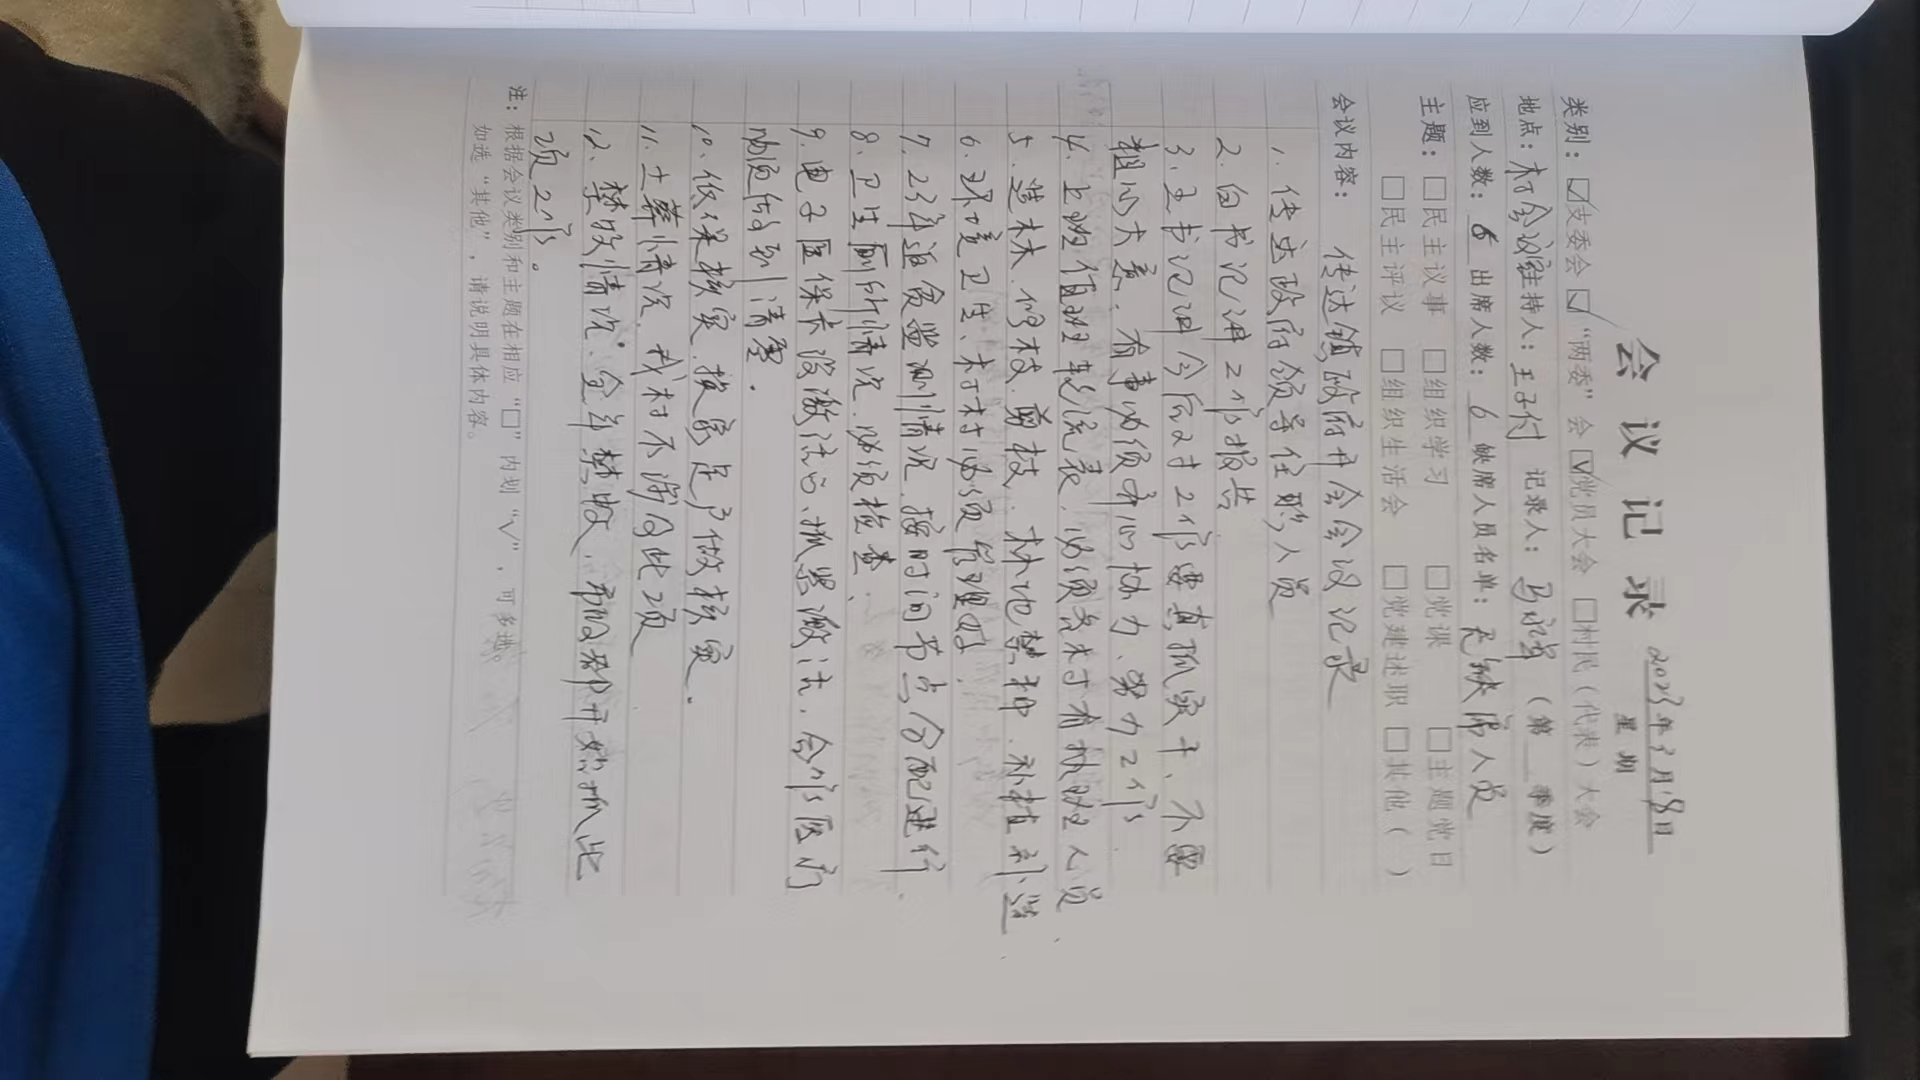 会议记录
2023年3月8日
星期
类别：☑支委会 ☑“两委”会 ☑党员大会 □村民（代表）大会
地点：村会议室 主持人：王子付 记录人： （第 季度）
应到人数：6 出席人数：6 缺席人员名单：无缺席人员
主题：□民主议事 □组织学习 □党课 □主题党日
□民主评议 □组织生活会 □党建述职 □其他（ ）
会议内容： 传达镇政府开会会议记录
1、传达政府领导任职人员
2、白书记讲工作报告
3、王书记讲今后对工作要真抓实干、不要
粗心大意、有事必须齐心协力、努力工作
4、上班值班轮流表、必须各村有值班人员、
5、造林、修枝、剪枝、林地禁种、补植补造
6、环境卫生、村村必须管理好、
7、2次年返贫监测情况、按时间节点分配进行、
8、卫生厕所情况、必须检查、
9、电子医保卡没激活的、抓紧激活、合作医疗
必须做到清零．
10、低保核实、挨家逐户做核实．
11、土葬情况、我村不涉及此项
12、禁牧情况、全年禁牧、 都开始抓此
项工作。
注：根据会议类别和主题在相应“□”内划“√”，可多选。
如选“其他”，请说明具体内容。